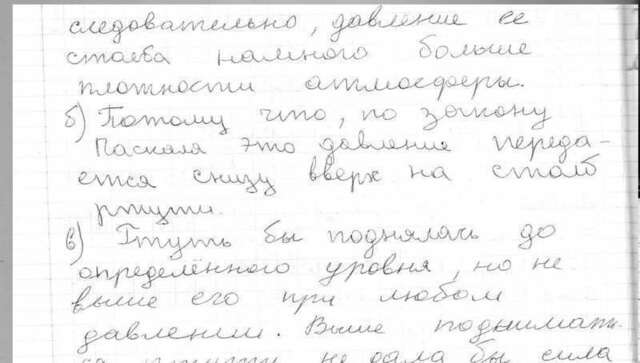 следовательно, давление ее
столба намного больше
плотности атмосферы.
б) Потому что, по закону
Паскаля это давление переда-
ется снизу вверх на столб
ртути.
в) Ртуть бы поднялась до
определённого уровня, но не
выше его при любом
давлении. Выше поднимать-
ся ртути не дала бы сила